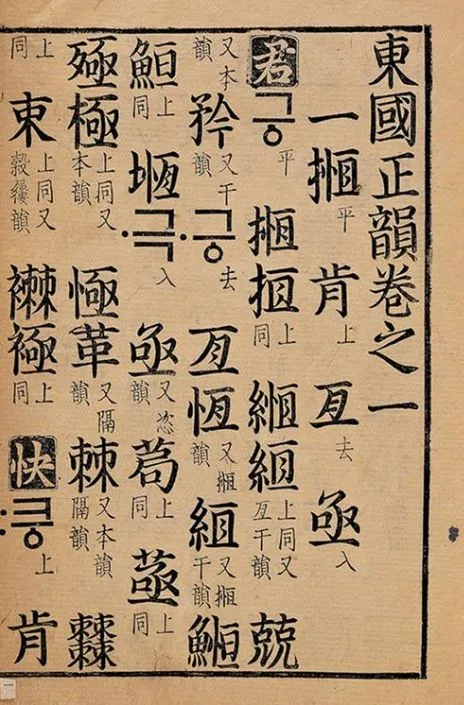 東國正韻卷之一
一揯平肯上亙去亟入
君긍平揯搄上同緪絚上同又亙干韻兢
又本韻矜又干韻·긍去亙恆又揯韻絙又揯干韻䱭
䱍上同堩·극入亟又恣韻茍上同上同
殛極上同又本韻㥛革又隔韻棘又本韻隔韻
上同朿上同又韻襋上同快:킁上肯